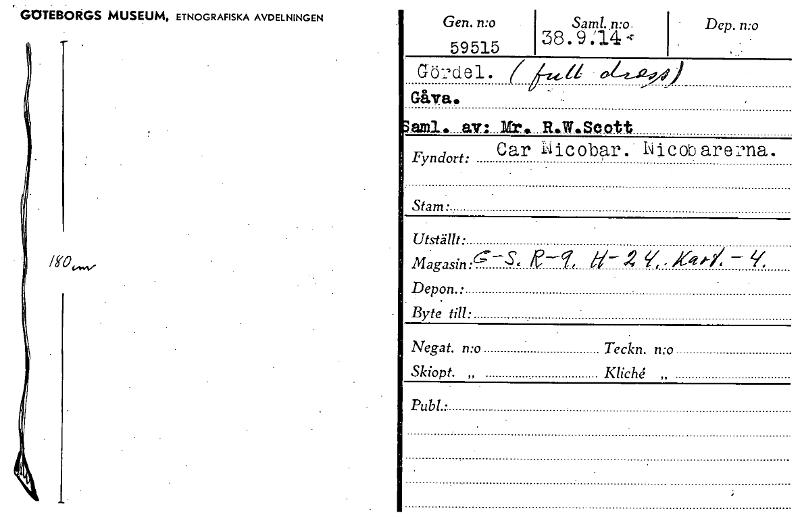 GÖTEBORGS MUSEUM, ETNOGRAFISKA AVDELNINGEN
180 cm
Gen. n:o Saml. n:o Dep. n:o
59515 38.9.14
Gördel. (full dress)
Gåva.
Saml. av: Mr. R.W.Scott
Fyndort: Car Nicobar. Nicobarerna.
Stam:
Utställt:
Magasin: G-S. R-9. H-24. Kart.-4.
Depon.:
Byte till:
Negat. n:o Teckn. n:o
Skiopt. „ Kliché „
Publ.: